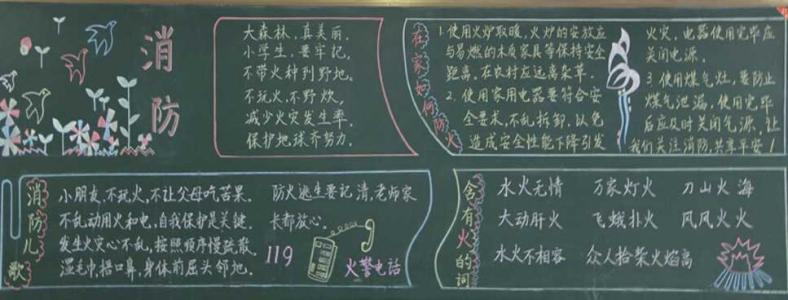 消防
大森林，真美丽。
小学生，要牢记。
不带火种到野地。
不玩火，不野炊，
减少火灾发生率。
保护地球齐努力。
在家如何防火
1. 使用火炉取暖，火炉的安放应
与易燃的木质家具等保持安全
距离，在农村应远离柴草。
2. 使用家用电器要符合安
全要求，不乱拆卸，以免
造成安全性能下降引发
火灾，电器使用完毕应
关闭电源。
3. 使用煤气灶，要防止
煤气泄漏，使用完毕
后应及时关闭气源，让
我们关注消防，共享平安！
消防儿歌
小朋友，不玩火，不让父母吃苦果。
不乱动用火和电，自我保护是关键。
发生火灾心不乱，按照顺序慢疏散。
湿毛巾，捂口鼻，身体前屈头邻地。
防火逃生要记清，老师家
长都放心。
119
火警电话
含有火的词
水火无情 万家灯火 刀山火海
大动肝火 飞蛾扑火 风风火火
水火不相容 众人拾柴火焰高